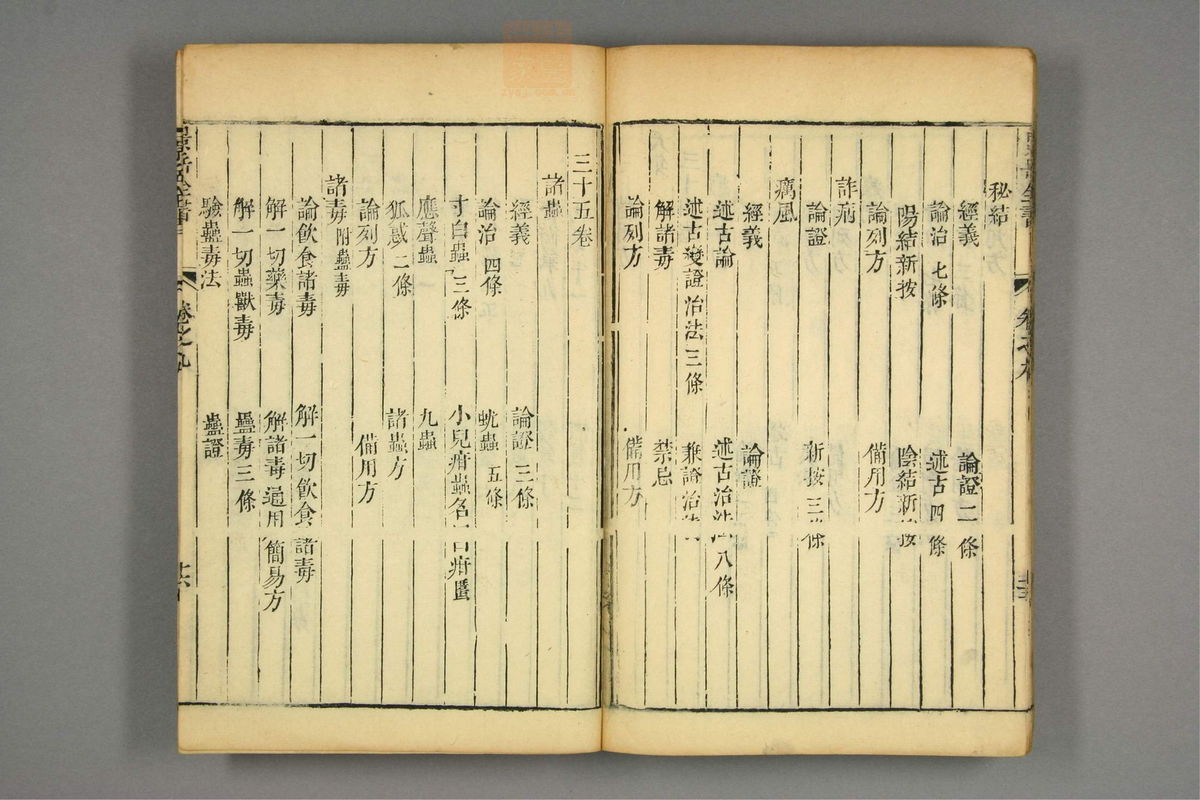 秘結
經義 論證二條
論治七條 述古四條
陽結新按 陰結新按
論列方 備用方
詐病
論證 新按三條
癘風
經義 論證
述古論 述古治法八條
述古變證治法三條 兼證治法
解諸毒 禁忌
論列方 備用方
三十五卷
諸蟲
經義 論證三條
論治四條 蚘蟲五條
寸白蟲三條 小兒疳蟲名
應聲蟲 九蟲
狐惑二條 諸蟲方
論列方 備用方
諸毒附蠱毒
論飲食諸毒 解一切飲食諸毒
解一切藥毒 解諸毒通用簡易方
解一切蟲獸毒 蠱毒三條
驗蠱毒法 蠱證
景岳全書
卷之九